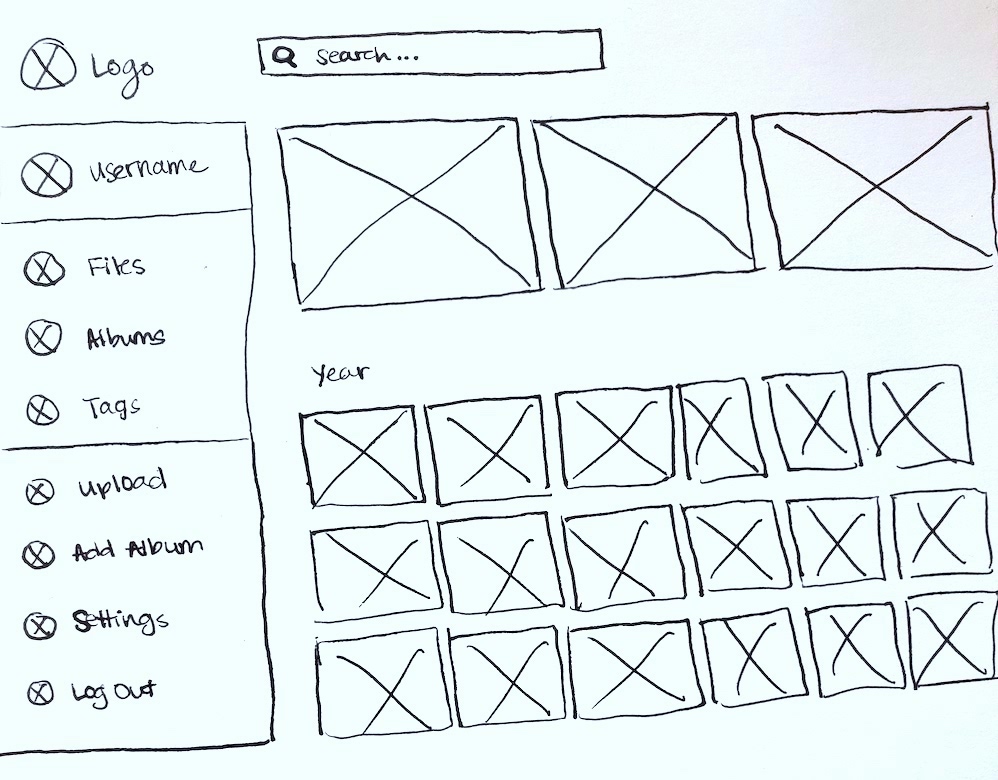 Logo
Search...
Username
Files
Albums
Tags
Year
Upload
Add Album
Settings
Log Out